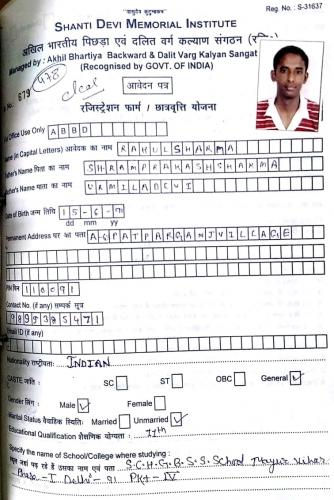 "वसुधैव कुटुम्बकम"
Reg. No. : S-31637
SHANTI DEVI MEMORIAL INSTITUTE
अखिल भारतीय पिछड़ा एवं दलित वर्ग कल्याण संगठन
Managed by : Akhil Bhartiya Backward & Dalit Varg Kalyan Sangat
(Recognised by GOVT. OF INDIA)
No. 679
आवेदन पत्र
रजिस्ट्रेशन फार्म / छात्रवृत्ति योजना
Office Use Only A B B D
Name (in Capital Letters) आवेदक का नाम RAHUL SHARMA
Father's Name पिता का नाम SH RAM PRAKASH SHARMA
Mother's Name माता का नाम URMILA DEVI
Date of Birth जन्म तिथि 15-6-
dd mm yy
Permanent Address घर का पता A-6 PATPARGANJ VILLAGE
PIN पिन 110091
Contact No. (if any) सम्पर्क सूत्र
9899385471
Email ID (if any)
Nationality राष्ट्रीयता: INDIAN
CASTE जाति : SC ST OBC General ✓
Gender लिंग : Male ✓ Female
Marital Status वैवाहिक स्थिति: Married Unmarried ✓
Educational Qualification शैक्षणिक योग्यता : 11th
Specify the name of School/College where studying :
पढ़ रहे हैं उसका नाम एवं पता S.C.H.G.B.S.S. School Mayur Vihar
Phase-I Delhi-91 PKT-IV